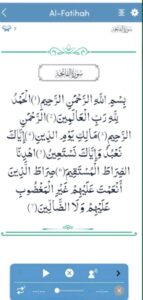 Al-Fatihah
سورة الفاتحة
سُورَةُ الفَاتِحَةِ
بِسْمِ اللَّهِ الرَّحْمَٰنِ الرَّحِيمِ (١) الْحَمْدُ
لِلَّهِ رَبِّ الْعَالَمِينَ (٢) الرَّحْمَٰنِ
الرَّحِيمِ (٣) مَالِكِ يَوْمِ الدِّينِ (٤) إِيَّاكَ
نَعْبُدُ وَإِيَّاكَ نَسْتَعِينُ (٥) اهْدِنَا
الصِّرَاطَ الْمُسْتَقِيمَ (٦) صِرَاطَ الَّذِينَ
أَنْعَمْتَ عَلَيْهِمْ غَيْرِ الْمَغْضُوبِ
عَلَيْهِمْ وَلَا الضَّالِّينَ (٧)